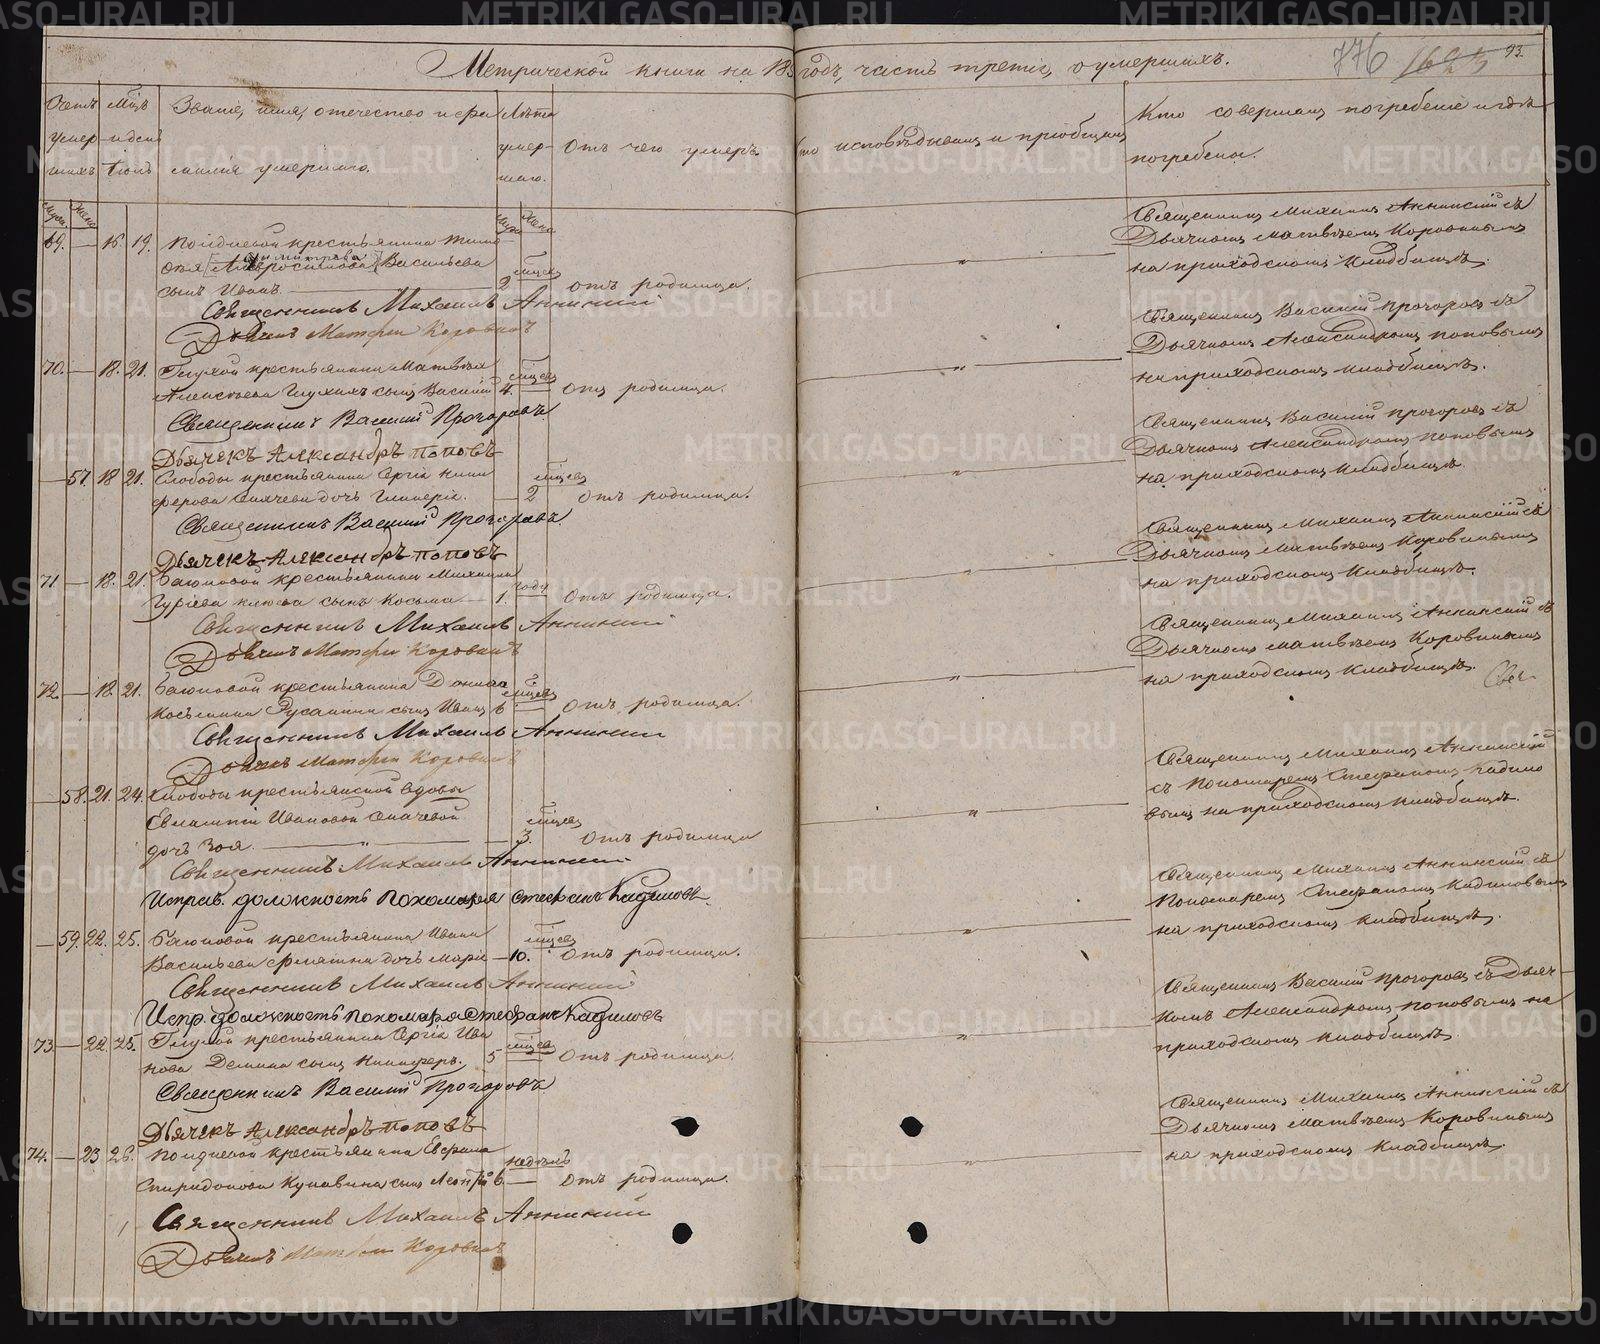 Метрической книги на 185 годъ, часть третія, о умершихъ.
776
93.
Счетъ умершихъ
Мѣсяцъ и день
Іюль
Званіе, имя, отечество и фамилія умершаго.
Лѣта умершаго.
Отъ чего умеръ
Кто исповѣдывалъ и пріобщалъ
Кто совершалъ погребеніе и гдѣ погребены.
Муж. Женс. Муж. Женс.
69. — 16. 19. крестьянина Тимо
ѳея Амвросимова Димитрева Васильева
сынъ Иванъ. — 2 мѣсяц отъ родимца.
Священникъ Михаилъ Аннинскій
Дьячекъ Матфей Коровинъ
Священникъ Михаилъ Аннинскій съ
Дьячкомъ Матвѣемъ Коровинымъ
на приходскомъ кладбищѣ.
70. — 18. 21. Глухой крестьянина Матвѣя
Алексѣева Глухихъ сынъ Василій 4. мѣсяц отъ родимца.
Священникъ Василій Прогоровъ
Дьячекъ Александръ Поповъ
Священникъ Василій Прогоровъ съ
Дьячкомъ Александромъ Поповымъ
на приходскомъ кладбищѣ.
— 57. 18 21. Слободы крестьянина Сергія Ники
ферова Сычева дочь Гликерія. — 2 мѣсяц отъ родимца.
Священникъ Василій Прогоровъ
Дьячекъ Александръ Поповъ
Священникъ Василій Прогоровъ съ
Дьячкомъ Александромъ Поповымъ
на приходскомъ кладбищѣ.
71 — 18. 21. крестьянина Михаила
Гуріева Клюева сынъ Косьма — 1. годъ Отъ родимца.
Священникъ Михаилъ Аннинскій
Дьячекъ Матфей Коровинъ
Священникъ Михаилъ Аннинскій съ
Дьячкомъ Матвѣемъ Коровинымъ
на приходскомъ кладбищѣ.
72. — 18. 21. крестьянина
сынъ Иванъ 6 мѣсяц Отъ родимца.
Священникъ Михаилъ Аннинскій
Дьячекъ Матфей Коровинъ
Священникъ Михаилъ Аннинскій съ
Дьячкомъ Матвѣемъ Коровинымъ
на приходскомъ кладбищѣ.
— 58. 21. 24. Слободы крестьянской вдовы
Евлампіи Ивановой Сычевой
дочь Зоя. — „ — 3. мѣсяц Отъ родимца
Священникъ Михаилъ Аннинскій
Исправ. должность Пономаря Стефанъ Кадиловъ.
Священникъ Михаилъ Аннинскій
съ Пономаремъ Стефаномъ Кадило
вымъ на приходскомъ кладбищѣ.
— 59. 22. 25. крестьянина Ивана
Васильева дочь Марія — 10. мѣсяц Отъ родимца.
Священникъ Михаилъ Аннинскій
Испр. должность пономаря Стефанъ Кадиловъ
Священникъ Михаилъ Аннинскій съ
Пономаремъ Стефаномъ Кадиловымъ
на приходскомъ кладбищѣ.
73. — 22. 25. Глухой крестьянина Сергія Ива
нова Демина сынъ Никифоръ. 5 мѣсяц Отъ родимца.
Священникъ Василій Прогоровъ
Дьячекъ Александръ Поповъ
Священникъ Василій Прогоровъ съ Дьяч
комъ Александромъ Поповымъ на
приходскомъ кладбищѣ.
74. — 23 26. крестьянина
Спиридонова Кунавина сынъ Леонтій 6 недѣль Отъ родимца.
Священникъ Михаилъ Аннинскій
Дьячекъ Матфей Коровинъ
Священникъ Михаилъ Аннинскій съ
Дьячкомъ Матвѣемъ Коровинымъ
на приходскомъ кладбищѣ.
METRIKI.GASO-URAL.RU